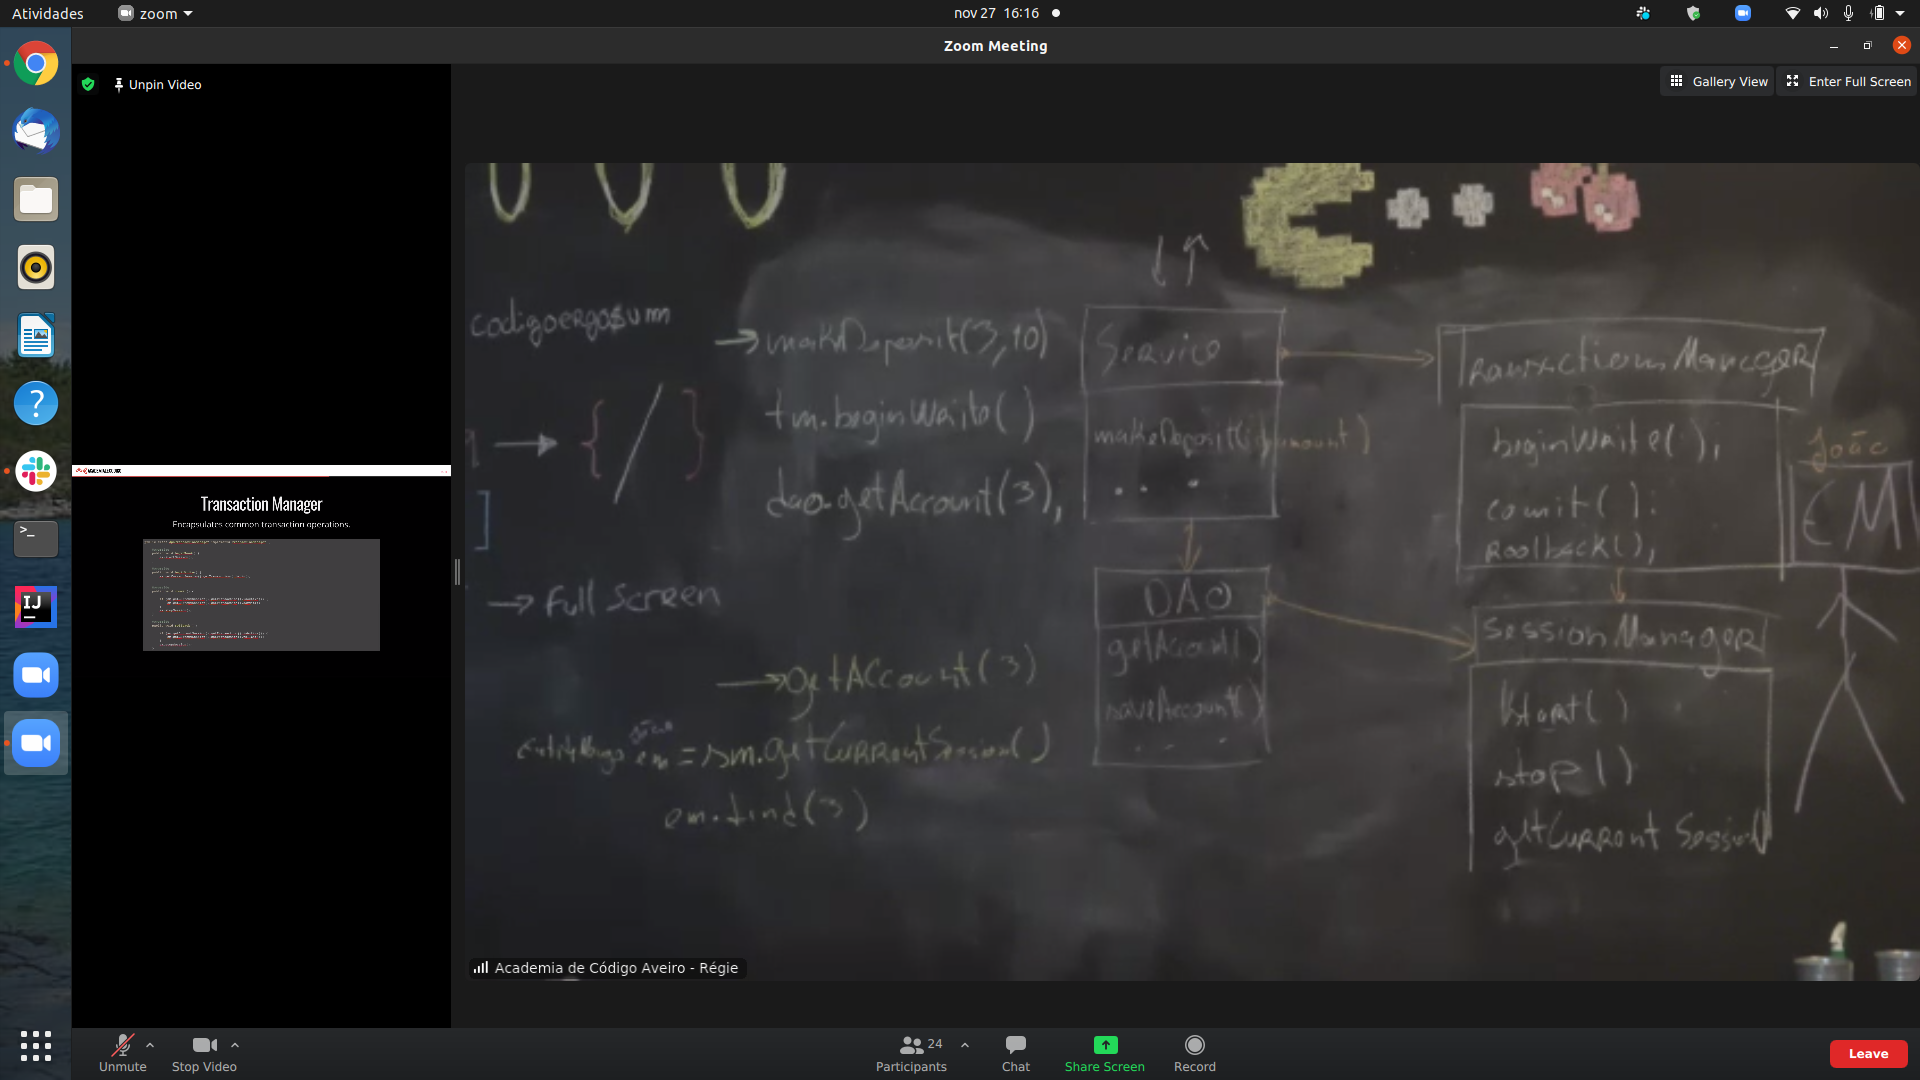 Atividades
zoom
nov 27 16:16
Zoom Meeting
Unpin Video
Gallery View
Enter Full Screen
Transaction Manager
Encapsulates common transaction operations.
codigoergosum
→ makDeposit(3,10)
tm.beginWrite()
dao.getAccount(3),
{ / }
]
→ Full Screen
→ getAccount(3)
em = sm.getCurrentSession()
em.find(3)
Service
makeDeposit(id, amount)
. . .
DAO
getAccount()
saveAccount()
. . .
TransactionManager
beginWrite();
comit();
roolback(),
João
EM
SessionManager
start()
stop()
getCurrent Session()
Academia de Código Aveiro - Régie
Unmute
Stop Video
24
Participants
Chat
Share Screen
Record
Leave
IJ